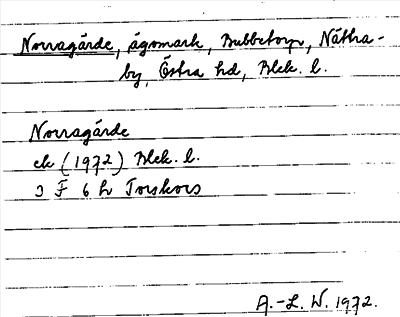 Norragärde, ägomark, Bubbetorp, Nättra-
by, Östra hd, Blek. l.
Norragärde
ek (1972) Blek. l.
3 F 6 h Torskors
A.-L. W. 1972.